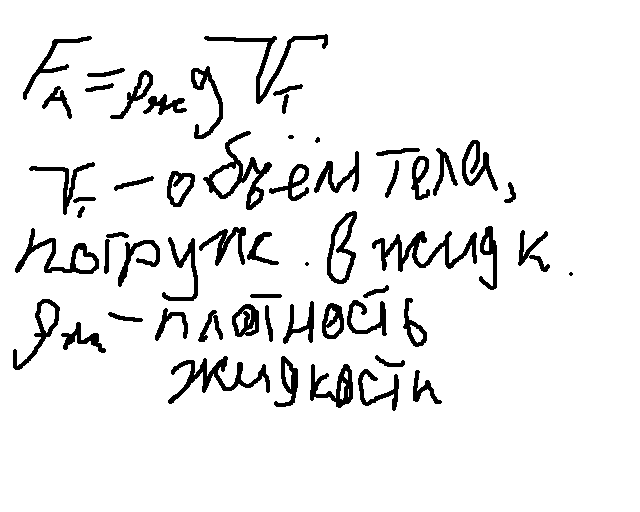 F_A = ρ_ж g V_т
V_т – объём тела,
погруж. в жидк.
ρ_ж – плотность
жидкости